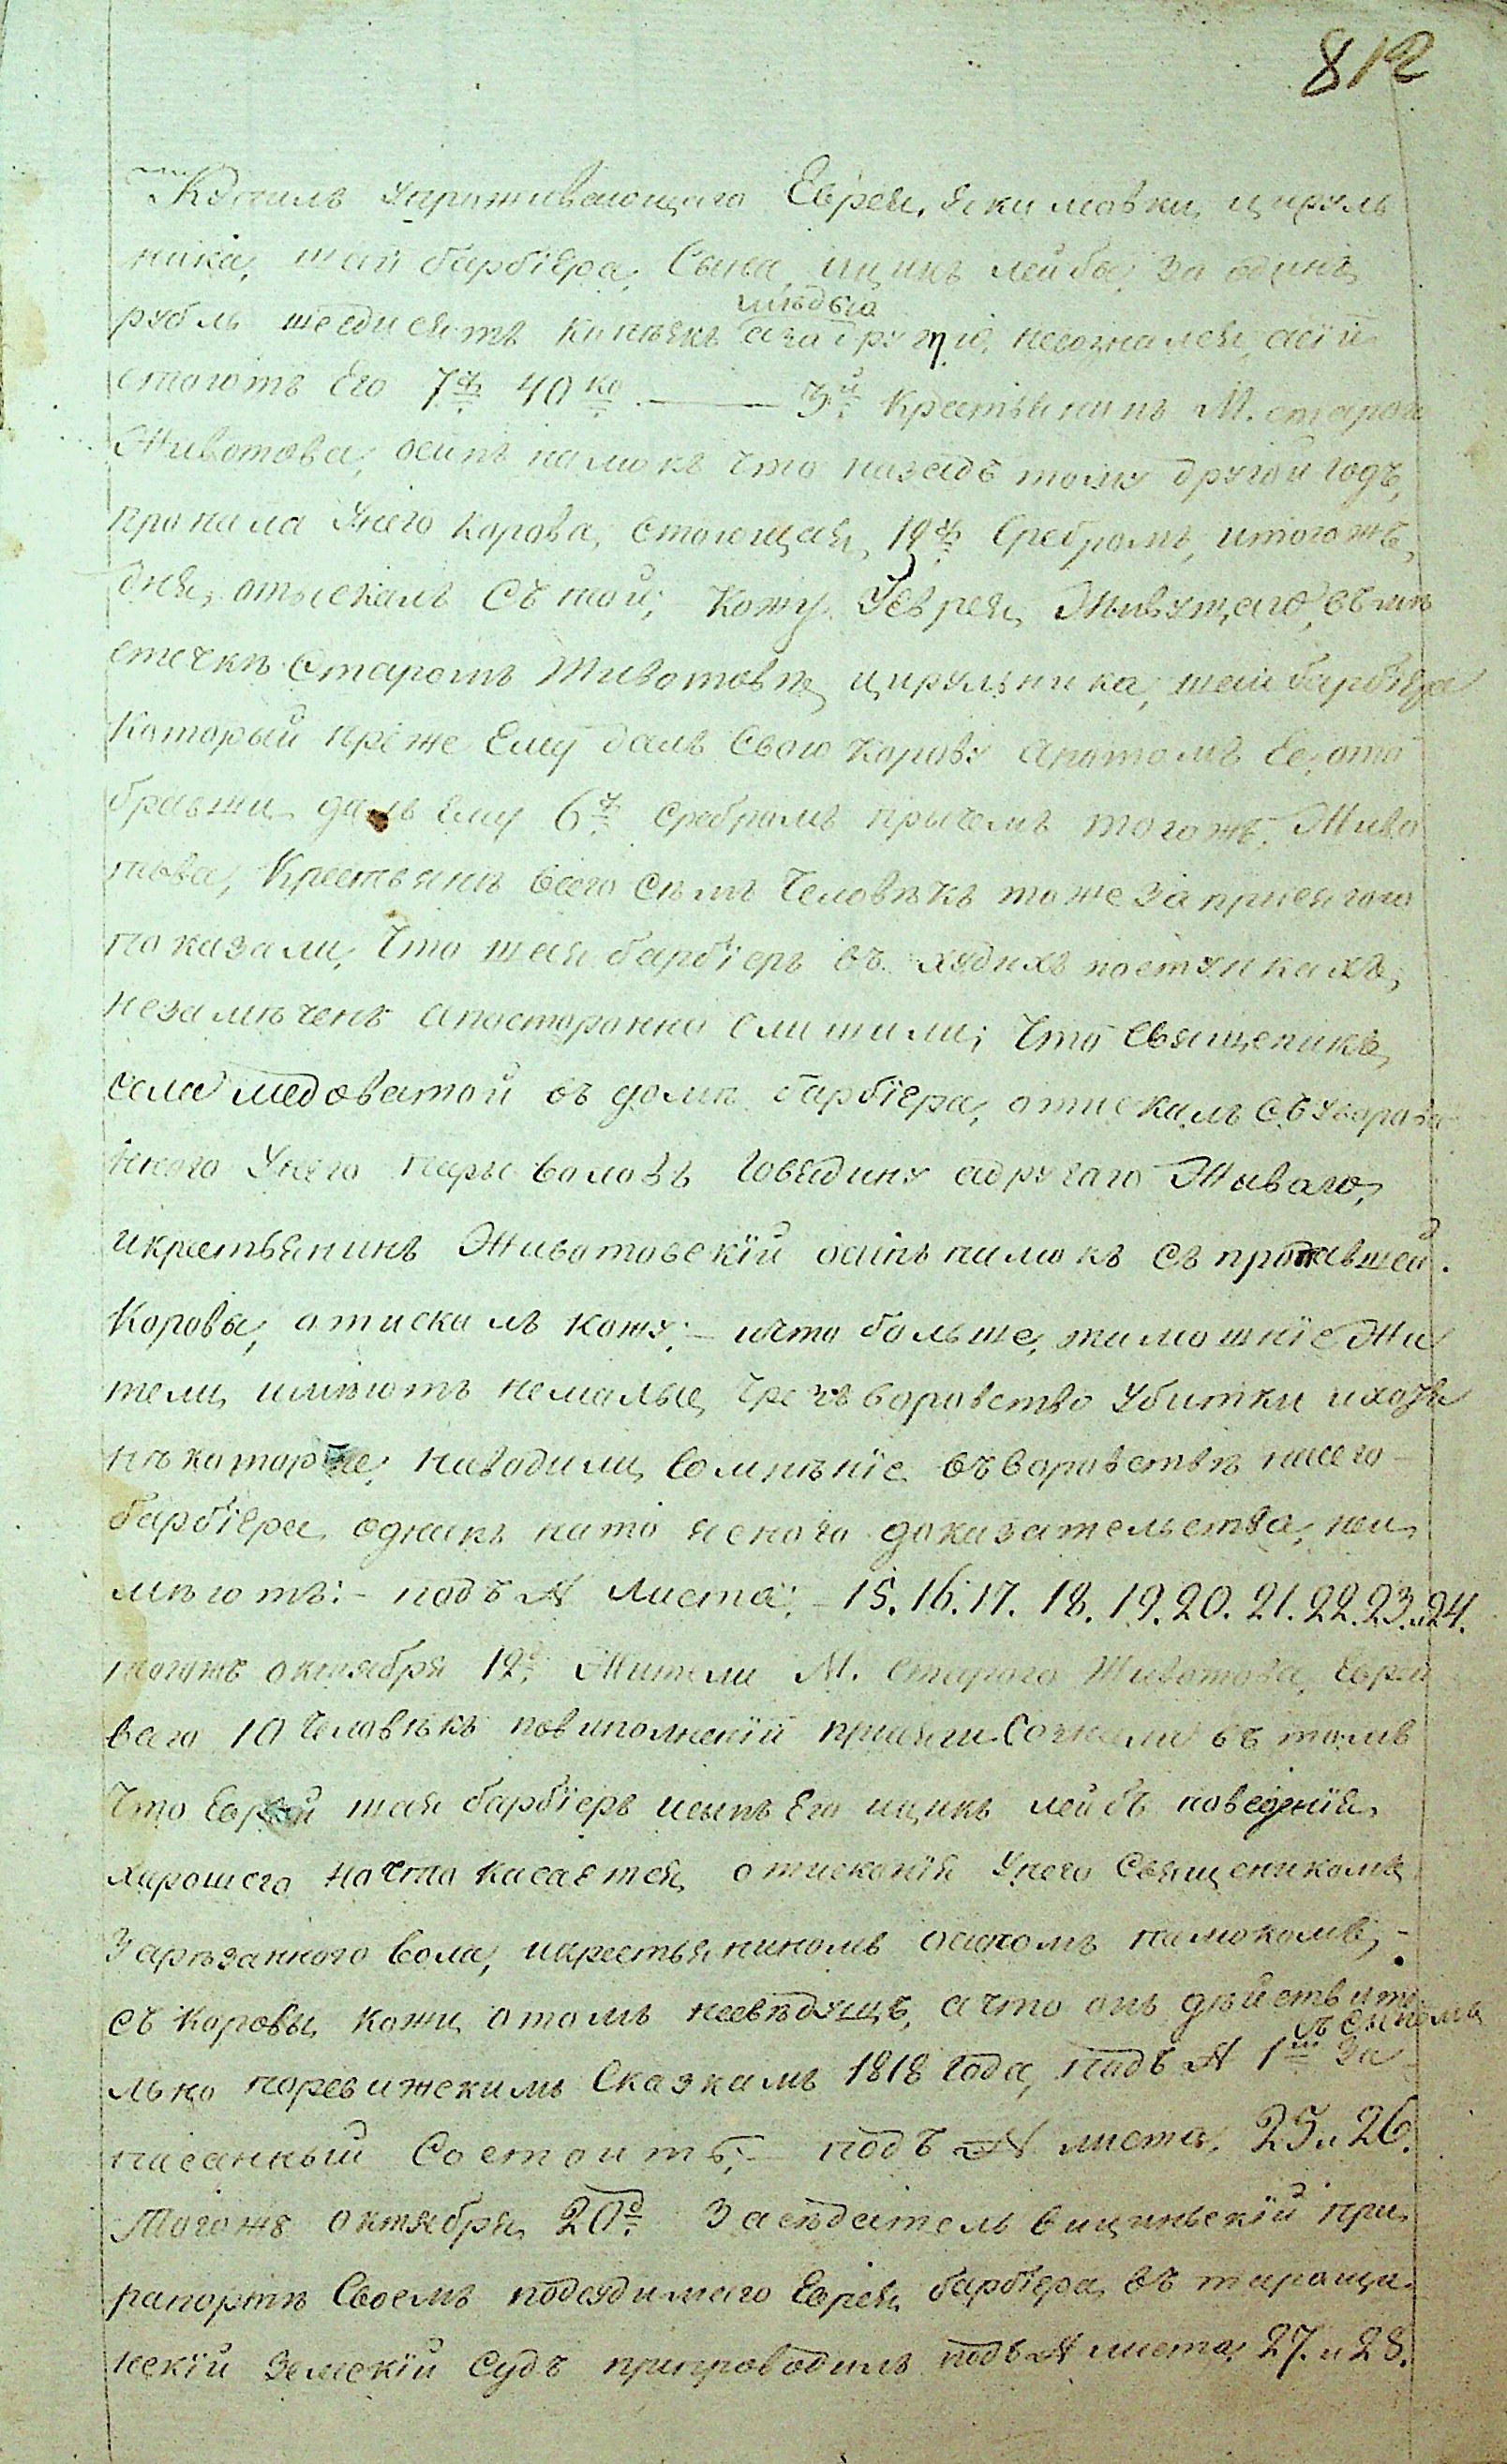 812
упроживающаго Еврея, якимовки, цируль
ника, шаи барбіера, Сына, ицикъ лейбы, за одинъ
мѣдью
рубль шесдисятъ копѣекъ а за другую, несознался, асіи
стоютъ Его 7 40 ко — 3й Крестьянинъ М. стараго
Животова, осипъ палюкъ что назадъ тому другой годъ,
пропала Унего Корова, стоющая, 12 Сребромъ, итогожъ
дня, отыскалъ Съ той, Кожу Уеврея, Живущаго, въ мѣ
стечкѣ Старомъ Животовѣ, цирульника, шаи барбіера
Который преже Ему далъ Свою Корову апотомъ Ее, ото
бравши далъ Ему 6 сребромъ причемъ тогожъ, Живо
това, Крестьянъ всего Семъ Человѣкъ тоже заприсягою
показали, Что шая барбіеръ въ худихъ поступкахъ,
незамѣченъ апосторонно слишили; Что Священикъ
села медоватой въ домѣ барбіера, отискалъ съ уворова
нного Унего пары воловъ говядину адругаго Живаго,
икрестьянинъ Животовскій осипъ палюкъ съ пропавшей
Коровы, отискалъ кожу; — ичто больше, тамошніе Жи
тели, имѣютъ немалые, Чрезъ воровство Убитки ихотя
нѣкоторые, наводили, Сомнѣніе въ воровствѣ насего
барбіера, однакъ нато ясного доказательства, неи
мѣютъ: — подъ № Листа: — 15. 16. 17. 18. 19. 20. 21. 22. 23. и 24.
тогожъ октября 12. Жители М. старого Животова, Евреи
всего 10 Человѣкъ повиполненіи присяги Сознали въ томъ
Что Еврей шая барбіеръ исынъ Его ицикъ лейбъ поведенія
хорошего ночто касается, отисканія Унего Священикомъ
Зарѣзанного вола, икрестьяниномъ осипомъ палюкомъ, —
съ Коровы, кожи, отомъ несвѣдущъ, ачто онъ дѣйствите
съ сыномъ
льно поревижскимъ Сказкамъ 1818 Года, подъ № 1 за
писанный Состоитъ; — подъ № листа, 25 и 26.
Тогожъ октября, 20. Засѣдатель вицинскій при
рапортѣ Своемъ подсудимаго Еврея барбіера, въ тараща
нскій Земскій Судъ припроводилъ подъ № листа, 27. и 28.